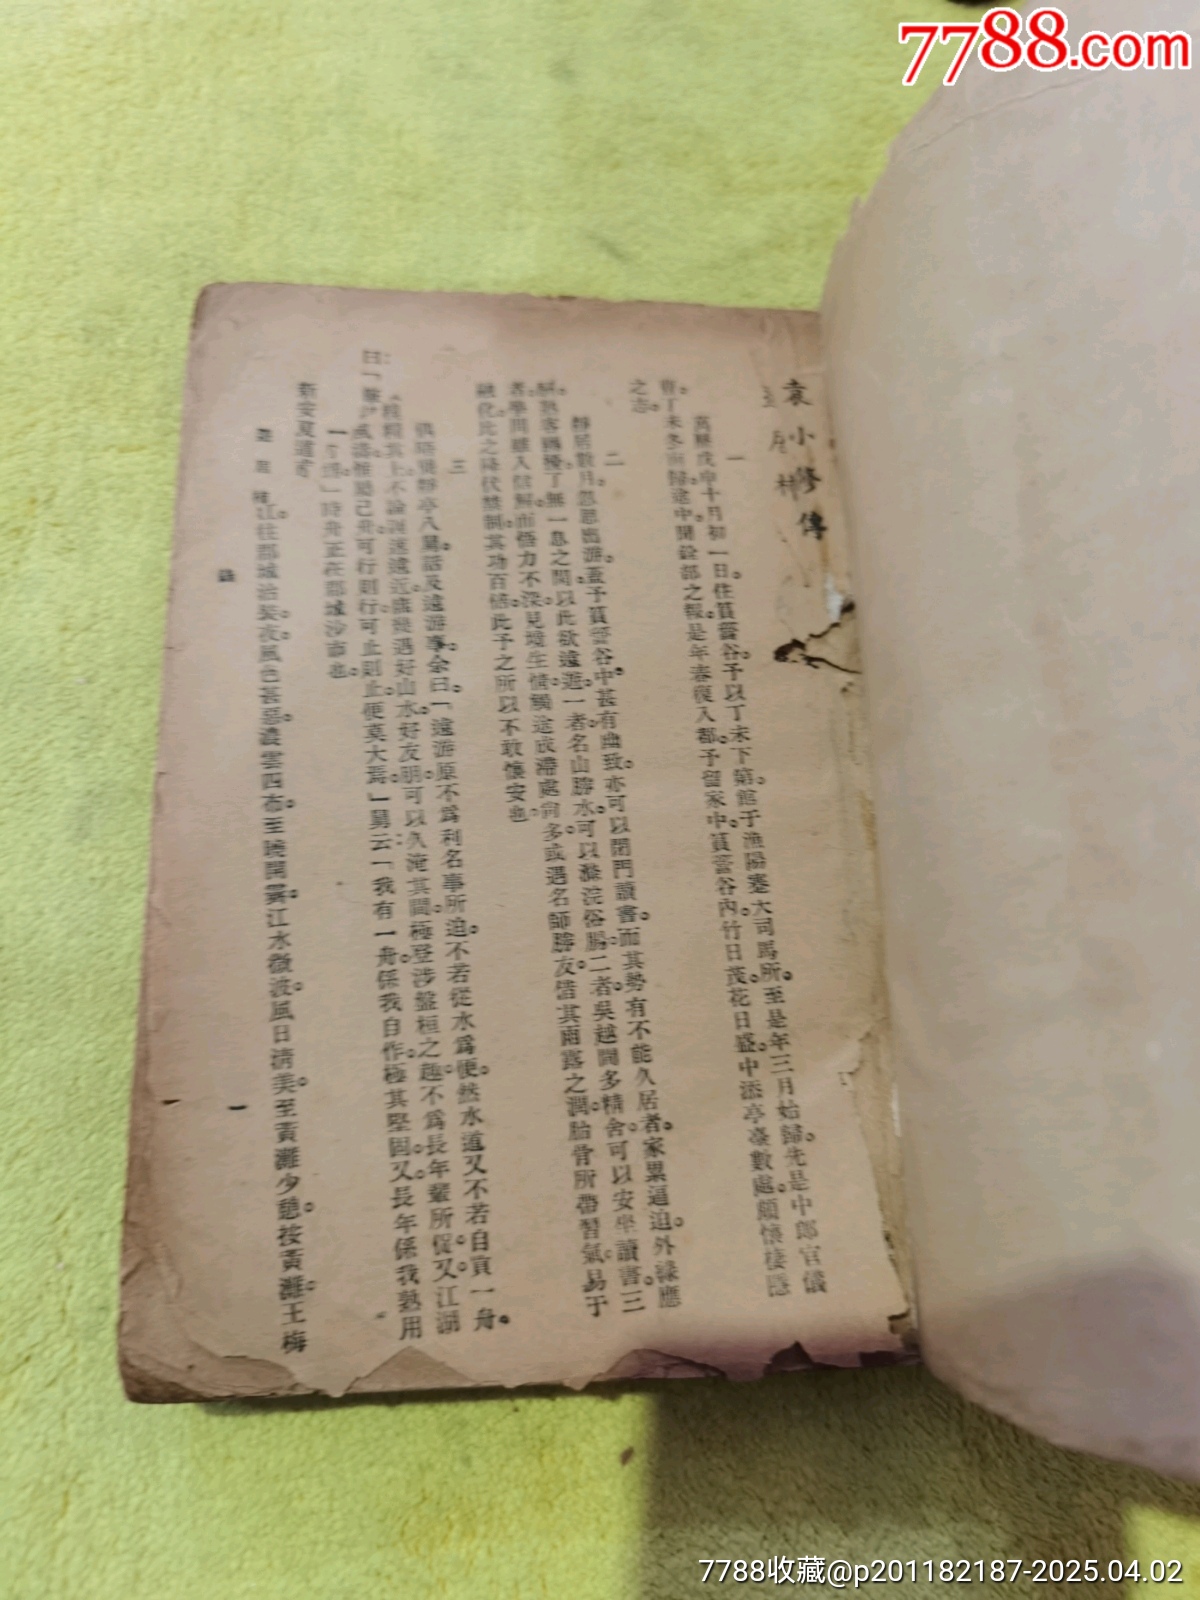 7788.com
袁小修傳
一
萬曆戊申十月初一日。住篔簹谷。予以丁未下第。館于漁陽蹇大司馬所。至是年三月始歸。先是中郎官儀
曹。丁未冬南歸。途中聞銓部之報。是年春復入都。予留家中。篔簹谷內。竹日茂。花日盛。中添亭臺數處。頗懷棲隱
之志。
二
靜居數月。忽思出游。蓋予篔簹谷中。甚有幽致。亦可以閉門讀書。而其勢有不能久居者。家累逼迫。外緣應
酬。熟客嬲擾。了無一息之閒。以此欲遠遊。一者名山勝水。可以滌浣俗腸。二者吳越間多精舍。可以安坐讀書。三
者學問雖入信解。而悟力不深。見境生情。觸途成滯處尚多。或遇名師勝友。借其雨露之潤。胎骨所帶習氣。易于
融化。比之降伏禁制。其功百倍。此予之所以不敢懷安也
三
偶晤龔靜亭八舅。話及遠游事。余曰。「遠游原不爲利名事所迫。不若從水爲便。然水道又不若自買一舟。
其上。不論遲速遠近。隨處遇好山水好友朋。可以久淹其間。極登涉盤桓之趣。不爲長年輩所促。又江湖
風濤。惟屬己舟。可行則行。可止則止。便莫大焉。」舅云。「我有一舟。係我自作。極其堅固。又長年係我熟用
」時舟正在郡城沙市也。
江往郡城治裝。夜風色甚惡。濃雲四布。至曉開霽。江水微波。風日清美。至黃灘少憩。按黃灘。王梅
新安夏道
錄
一
7788收藏@p201182187-2025.04.02